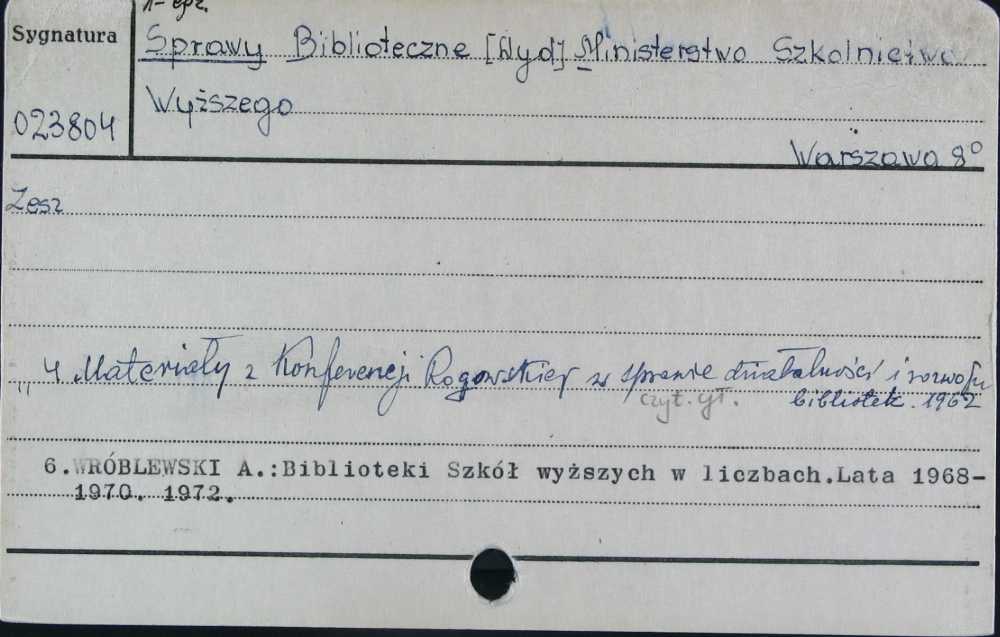 1-egz.
Sygnatura
Sprawy Biblioteczne [Wyd] Ministerstwo Szkolnictwa
Wyższego
023804
Warszawa 8°
Zesz
„ 4 Materiały z Konferencji Rogowskiej w sprawie działalności i rozwoju
czyt. gł. bibliotek. 1962
6.WRÓBLEWSKI A.:Biblioteki Szkół wyższych w liczbach.Lata 1968-
1970. 1972.